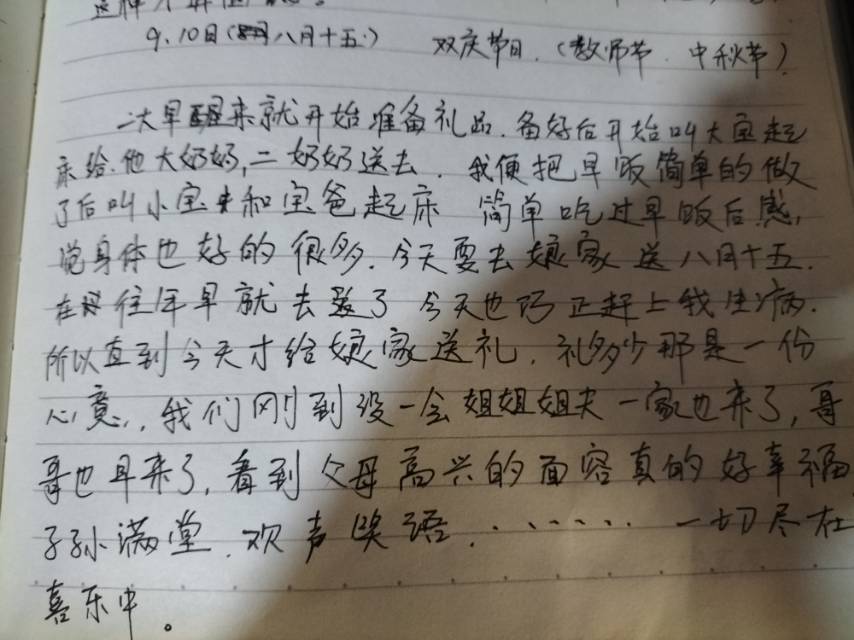 9.10日(八月十五) 双庆节日.(教师节.中秋节)
一大早醒来就开始准备礼品.备好后开始叫大宝起
床给.他大奶奶,二奶奶送去.我便把早饭简单的做
了后叫小宝和宝爸起床 简单吃过早饭后感,
觉身体也好的很多.今天要去娘家送八月十五.
在往年早就去送了今天也巧正赶上我生病.
所以直到今天才给娘家送礼.礼多少那是一份
心意..我们刚到没一会姐姐姐夫一家也来了,哥
哥也早来了,看到父母高兴的面容真的好幸福
子孙满堂.欢声笑语.、、、、、.一切尽在
喜乐中。